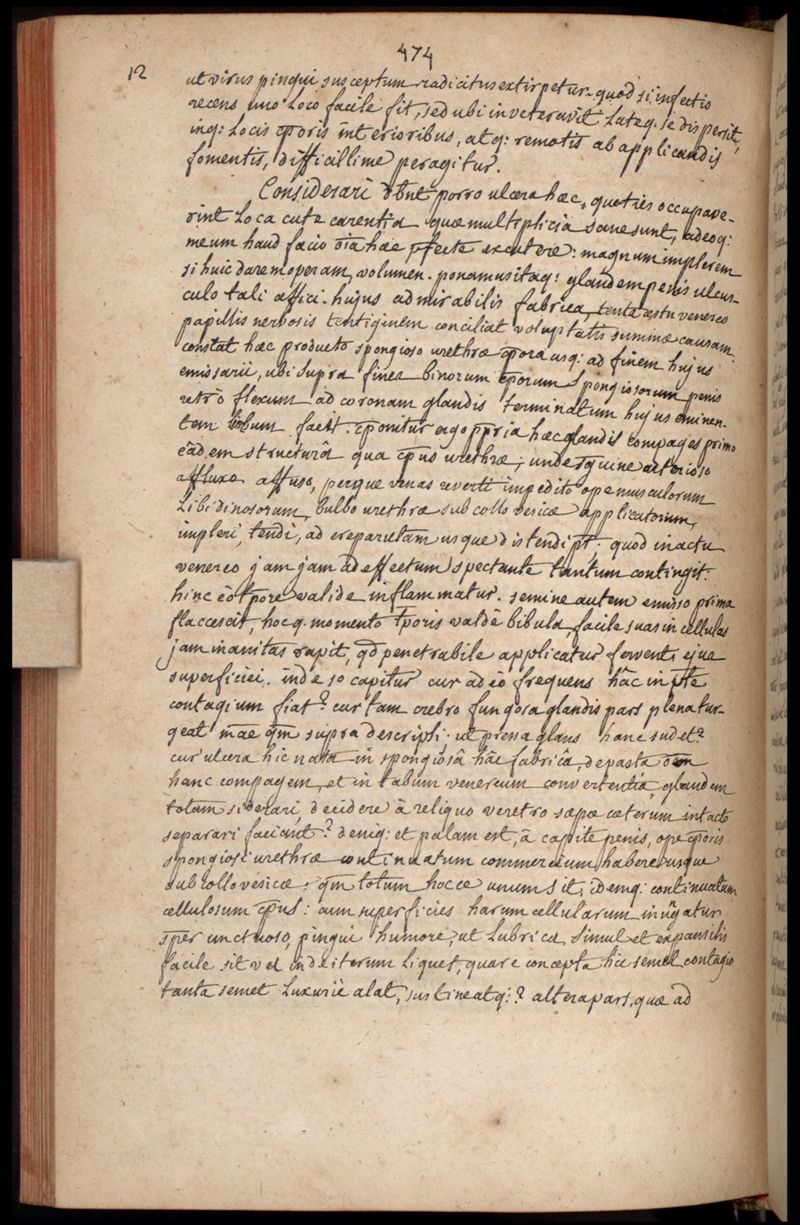 474
12
ut virus pingui susceptum radicitus extirpetur. quod si infectio
recens uno loco facile fit, sed ubi inveteravit lateq. se dispersit,
inq: locis c̄poris interioribus, atq: remotis ab applicandis
fomentis, difficillime peragitur.
Considerari dbnt porro ulcera haec, quoties occupave-
rint loca cute carentia quae multiplicia sane sunt, adeoq:
meum haud facio oīa haec pfecte excutere: magnum implerem
si huic darem operam, volumen. ponamus itaq: glandem penis ulcus-
culo tali affici. hujus admirabilis fabrica, tenta aestu venereo
papillis nervosis tentiginem conciliat voluptatis summae causam
constat haec producto spongioso urethrae c̄pora usq: ad finem hujus
emissarii, ubi supra fines binorum c̄porum spongiosorum penis
retrò flexum ad coronam glandis terminatum hujus eminen-
tem bulbum facit. c̄ponitur ergo ppria haec glandis compages primo
eâdem structurâ qua c̄pus urethrae; unde sanguine arterioso
affluxo affuso, perque venas reverti impedito ope musculorum
libidinosorum, bulbo urethrae sub collo vesicae applicatorum,
impleri, tendi, ad crepaturam usque distendi pt; quod in actu
venereo jam jam ad effectum spectante tantum contingit.
hinc eo tpore valide inflammatur. semine autem emisso prima
flaccescit, hocq. momento tporis valdè bibula, facile suas in cellulas
jam inanitas rapit, qd penetrabile applicatur ferventi ejue
superficiei. inde so capitur cur adeo frequens hâc in pte
contagium fiat? cur tam crebro fungosa glandis pars plenatur-
geat mae qm supra descripsi. ut prena glans hanc sudet?
cur ulcera hic nata in spongiosâ hâc fabricâ, depasta om
hanc compagem, et in tabum venereum convertentia, glandem
totam siderari, decidere à reliquo veretro saepe caeterum intacto
separari faciant? deniq: et palam est, à capite penis, ope c̄poris
spongiosi urethrae continuatum commercium habere usque
sub collo vesicae: qm totum hocce unum sit, idemq: continuatum
cellulosum c̄pus: cum superficies harum cellularum inungatur
sper unctuoso, pingui humore, ut lubrica simul et expansilis
facile sit vel inde iterum liquet, quare concepta hic semel contagio
tanta semet luxurie alat, sustineatq:? altera pars, quae ad